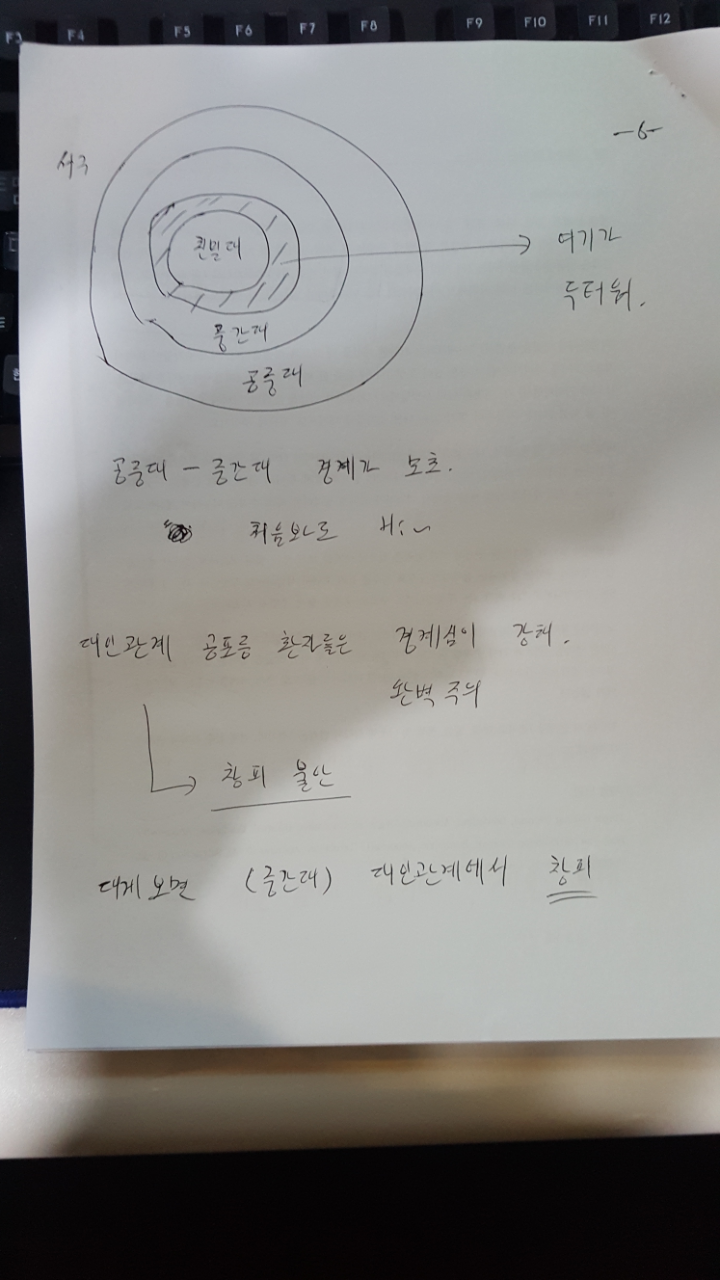 F3 F4 F5 F6 F7 F8 F9 F10 F11 F12
-6-
서구
친밀대
여기가
두터워.
중간대
공중대
공중대 - 중간대 경계가 모호.
처음봐도 Hi~
대인관계 공포증 환자들은 경계심이 강해.
완벽주의
창피 불안
대게 보면 (중간대) 대인관계에서 창피